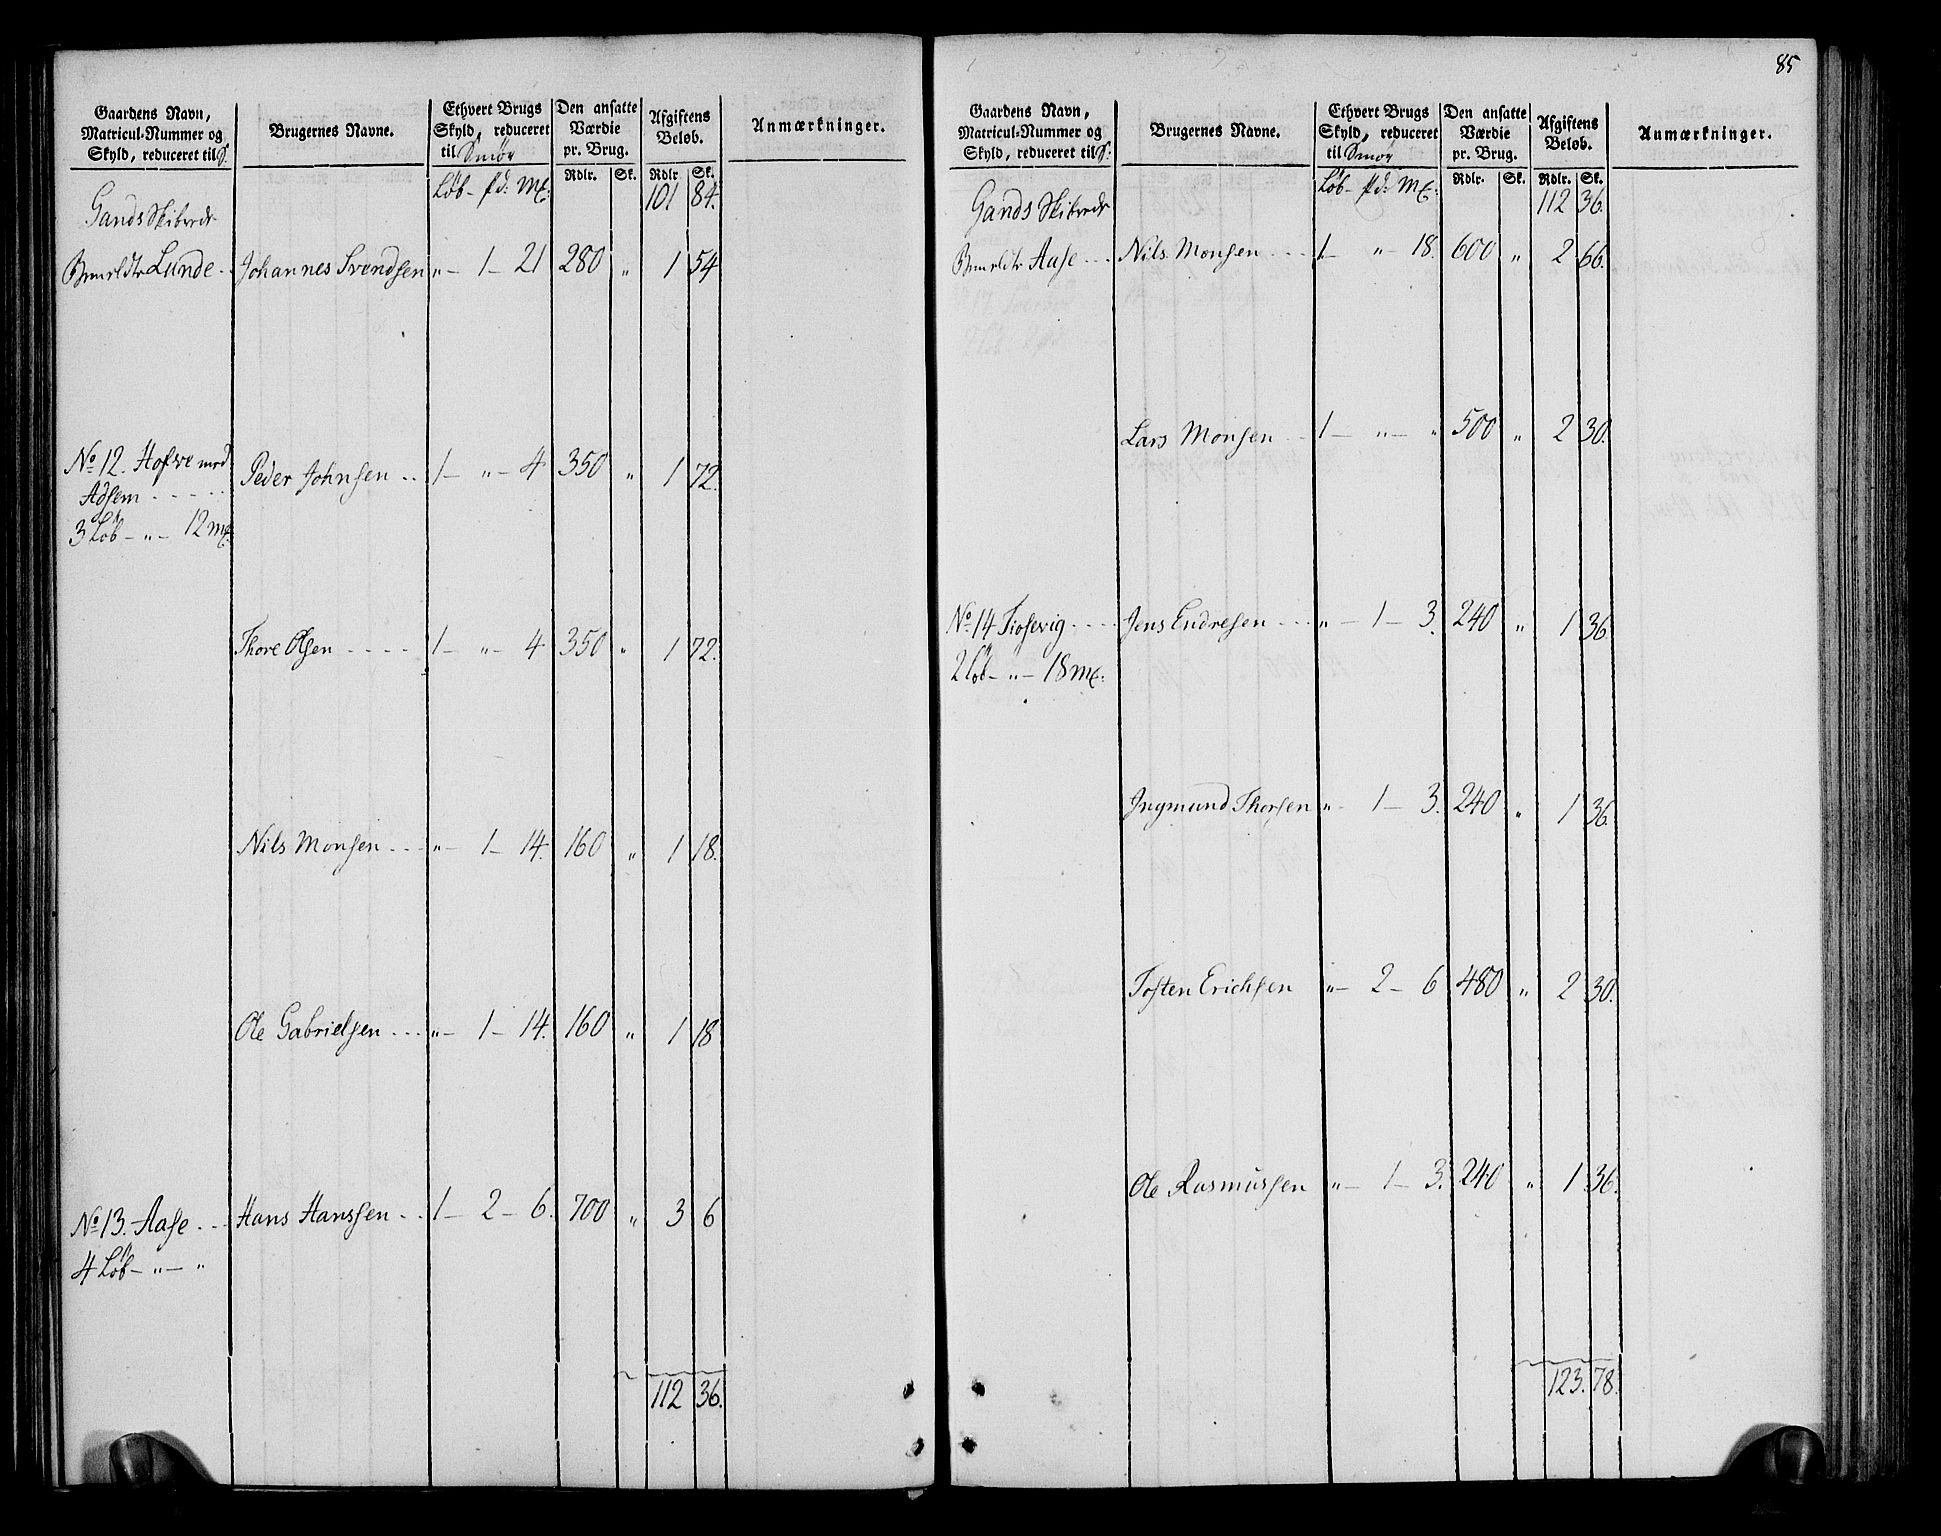 85
Gaardens Navn, Matricul-Nummer og Skyld, reduceret til S:
Brugernes Navne.
Ethvert Brugs Skyld, reduceret til Smør
Den ansatte Værdie pr. Brug.
Afgiftens Beløb.
Anmærkninger.
Rdlr. Sk. Rdlr. Sk.
Løb - pd: Mk: 101 84.
Gands Skibrede
Lunde - Johannes Svendsen „ - 1 - 21 280 „ 1 54
No 12. Hofve med Peder Johnsen .. 1 - „ - 4 350 „ 1 72.
Adsem - - - -
3 Løb - „ - 12 Mk:
Thore Olsen - - - - 1 - „ - 4 350 „ 1 72.
Nils Monsen - - - „ - 1 - 14. 160 „ 1 18.
Ole Gabrielsen - - - „ - 1 - 14. 160 „ 1 18
No 13. Aase - - - Hans Hanssen - - 1 - 2 - 6. 700 „ 3 6
4 Løb - „ - „
112 36.
Gaardens Navn, Matricul-Nummer og Skyld, reduceret til S:
Brugernes Navne.
Ethvert Brugs Skyld, reduceret til Smør
Den ansatte Værdie pr. Brug.
Afgiftens Beløb.
Anmærkninger.
Rdlr. Sk. Rdlr. Sk.
Løb - pd: Mk: 112 36.
Gands Skibrede
Aase - - - Nils Monsen - - - 1 - „ - 18. 600 „ 2 66.
Lars Monsen - - 1 - „ - „ 500 „ 2 30.
No 14 Tiosevig - - - - Jens Endresen - - - „ - 1 - 3. 240 „ 1 36
2 Løb - „ - 18 Mk:
Ingmund Thorsen „ - 1 - 3. 240 „ 1 36.
Tosten Erichsen „ - 2 - 6 480 „ 2 30.
Ole Rasmussen „ - 1 - 3. 240 „ 1 36.
123. 78.